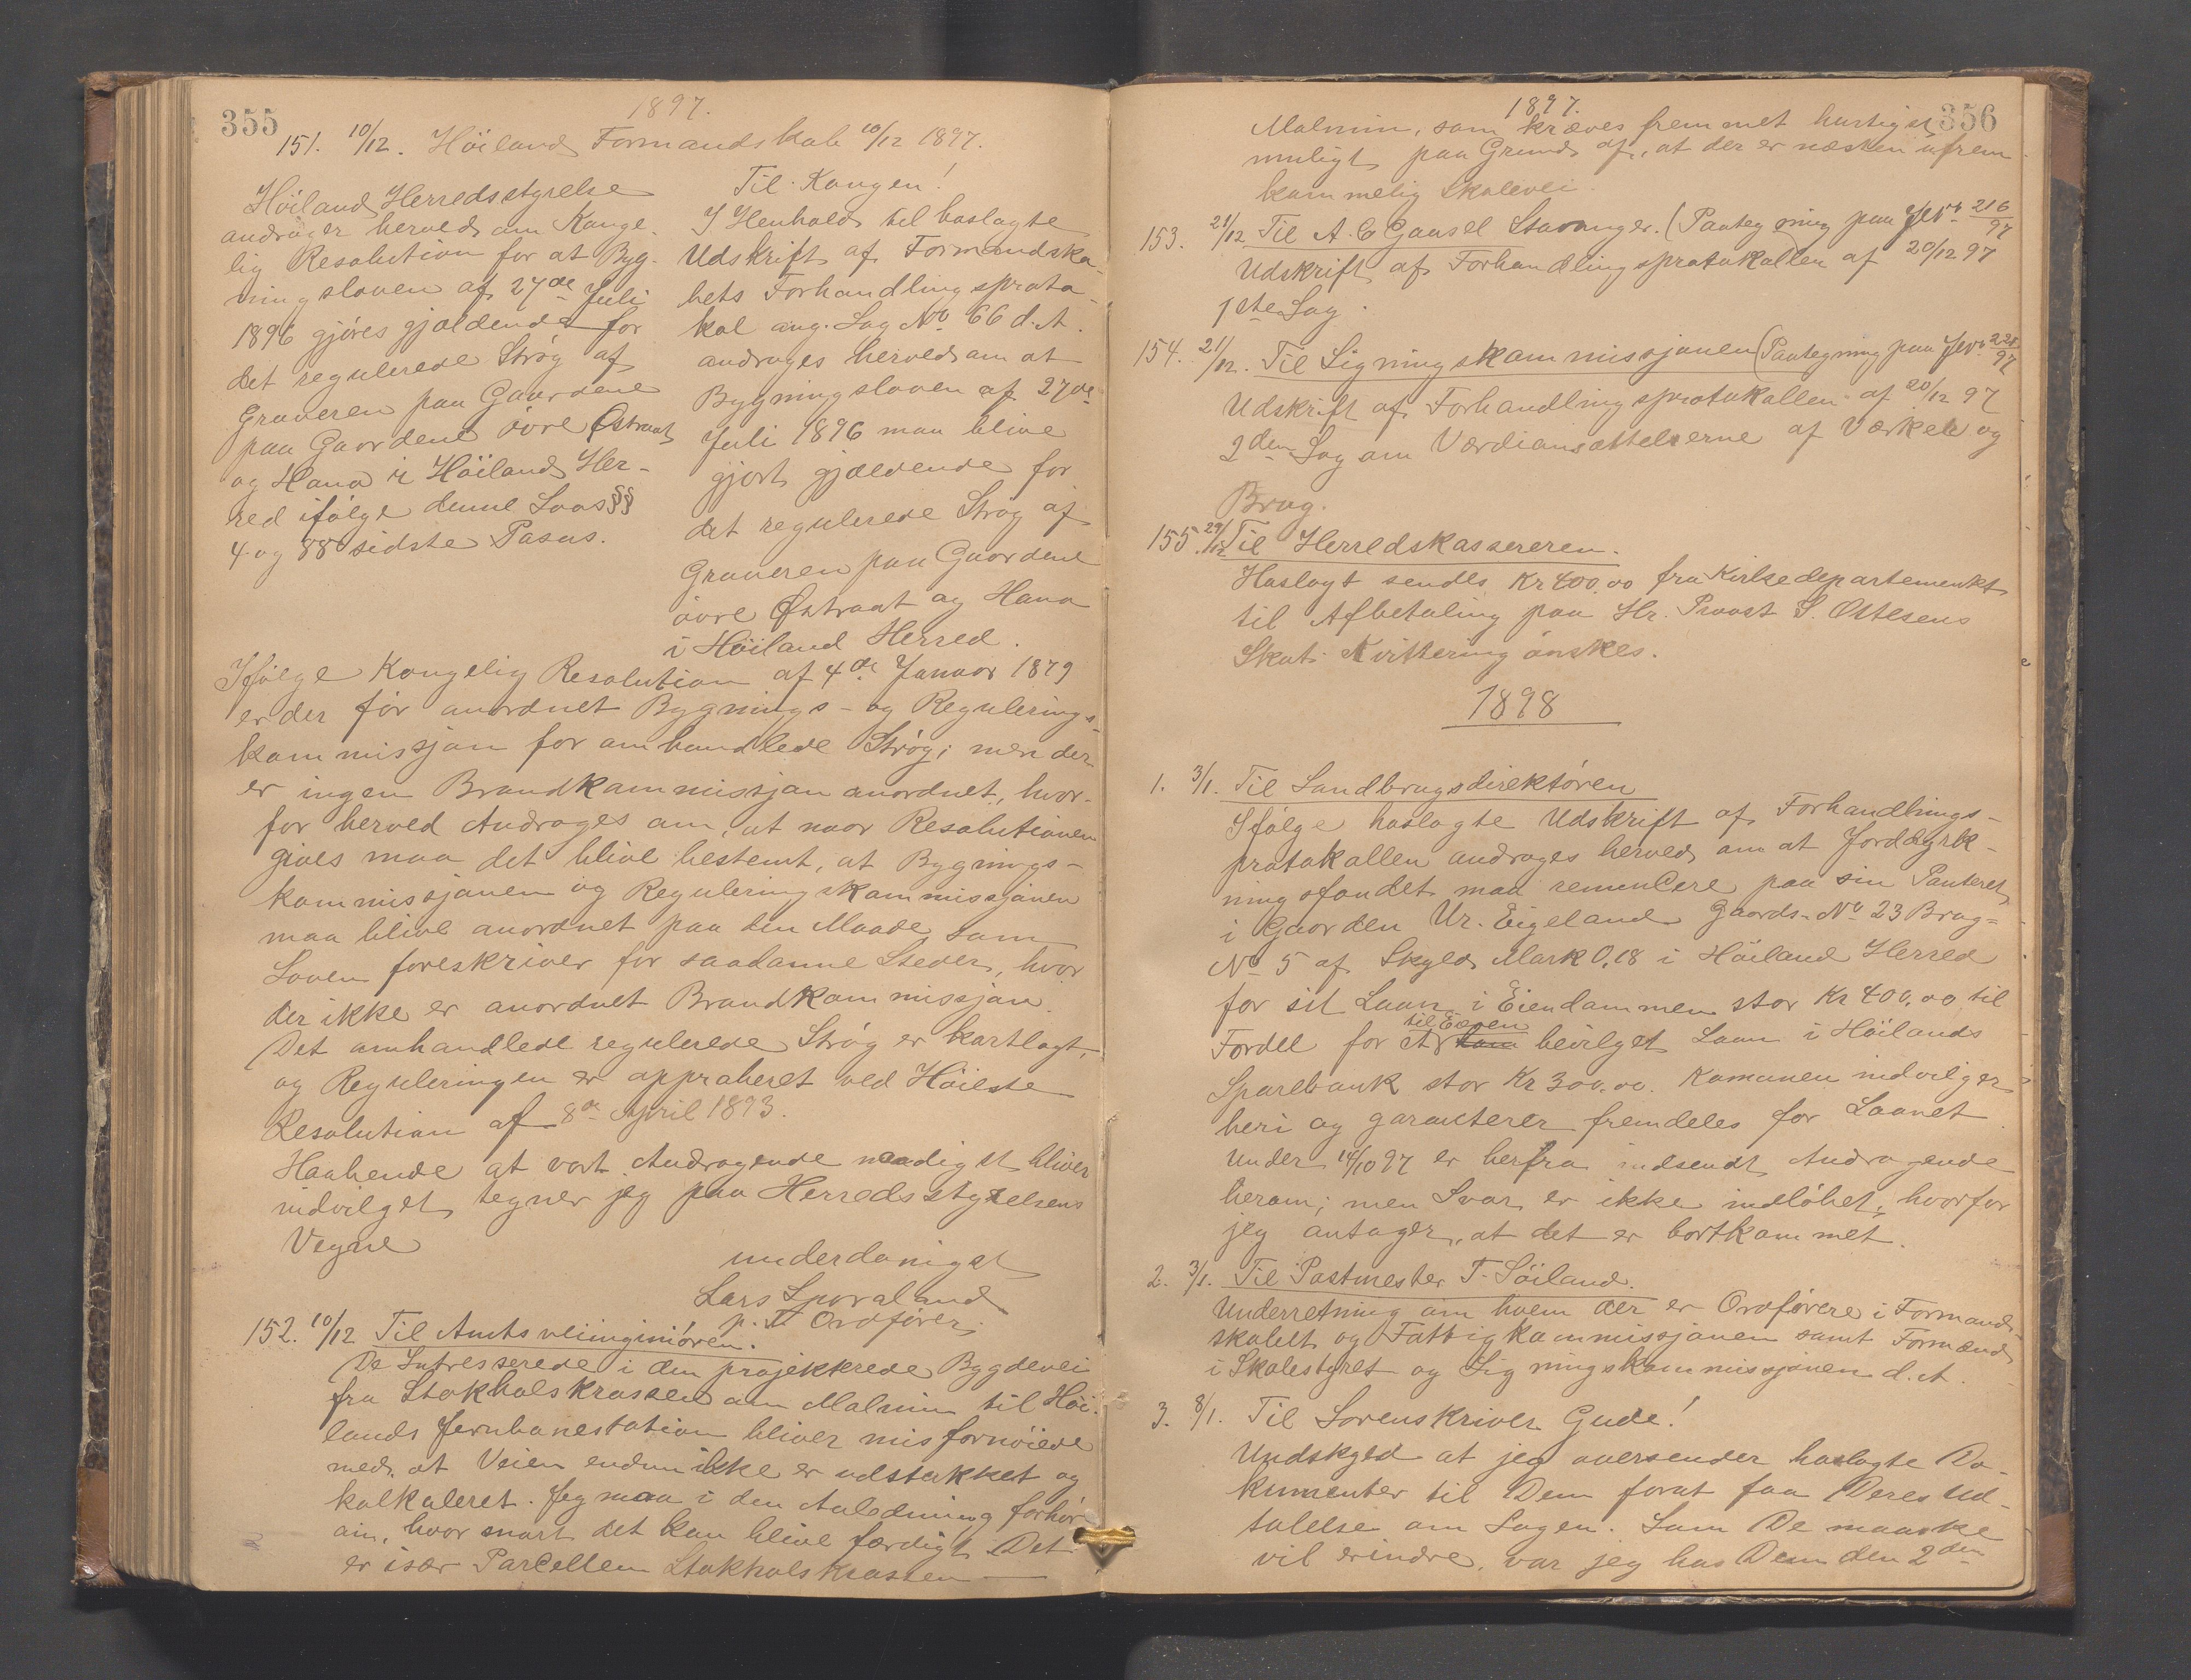 355
1897.
151. 10/12. Höiland Formandskab 10/12 1897.
Höiland Herredsstyrelse
andrager herved om Konge-
lig Resolution for at Byg-
ningsloven af 27de Juli
1896 gjöres gjældende for
det regulerede Strög af
Graveren paa Gaardene
paa Gaardene övre Østraat
og Hana i Höiland Her-
red ifölge denne Lovs §§
4 og 88 sidste Pasus.
Til Kongen!
I Henhold til hoslagte
Udskrift af Formandska-
bets Forhandlingsproto-
kol ang. Sag No 66 d. A.
andrages herved om at
Bygningsloven af 27de
Juli 1896 maa blive
gjort gjældende for
det regulerede Strög af
Graveren paa Gaardene
övre Østraat og Hana
i Höiland Herred.
Ifölge Kongelig Resolution af 4de Januar 1879
er der för anordnet Bygnings- og Regulerings-
kommissjon for omhandlede Strög; men der
er ingen Brandkommissjon anordnet, hvor-
for herved Andrages om, at naar Resolutionen
gives maa det blive bestemt, at Bygnings-
kommissjonen og Reguleringskommissjonen
maa blive anordnet paa den Maade som
Loven foreskriver for saadanne Steder, hvor
der ikke er anordnet Brandkommissjon.
Det omhandlede regulerede Strög er kartlagt,
og Reguleringen er approberet ved Höieste
Resolution af 8de April 1893.
Haabende at vort Andragende naadigst bliver
indvilget tegner jeg paa Herredsstyrelsens
Vegne
underdanigst
Lars Sporaland
p. t. Ordförer.
152. 10/12 Til Amtsveiingeniören.
De Intresserede i den projekterede Bygdevei
fra Stokholskrossen om Malmin til Höi-
lands Jernbanestation bliver misfornöiede
med, at Veien endnu ikke er udstukket og
kalkuleret. Jeg maa i den Anledning forhör
om, hvor snart det kan blive færdigt. Det
er især Parcellen Stokholskrossen —
1897.
356
Malmin, som kræves fremmet hurtigst
muligt paa Grund af, at der er næsten ufrem-
kommelig Skolevei.
153. 21/12 Til A. C Gausel Stavanger. (Paategning paa Jevr 216/97
Udskrift af Forhandlingsprotokollen af 20/12 97
1ste Sag.
154. 21/12. Til Ligningskommissjonen (Paategning paa Jevr 228/97
Udskrift af Forhandlingsprotokollen af 20/12 97
2den Sag om Værdiansættelserne af Værker og
Brug.
155. 29/12 Til Herredskassereren.
Hoslagt sendes Kr 400.00 fra Kirkedepartementet
til Afbetaling paa Hr. Provst S. Ottesens
Skat. Kvittering önskes.
1898
1. 3/1. Til Landbrugsdirektören
Ifölge hoslagte Udskrift af Forhandlings-
protokollen andrages herved om at Jorddyrk-
ningsfondet maa renuncere paa sin Panteret
i Gaarden Ur. Eigeland Gaards-No 23 Brug-
No 5 af Skyld Mark 0.18 i Höiland Herred
for sit Laan i Eiendommen stor Kr 400.00 til
til Eieren
Fordel for et ham bevilget Laan i Höilands
Sparebank stor Kr 300.00. Komunen indvilger
heri og garanterer fremdeles for Laanet.
Under 14/10 97 er herfra indsendt Andragende
herom; men Svar er ikke indlöbet, hvorfor
jeg antager, at det er bortkommet.
2. 3/1. Til Postmester T. Söiland.
Underretning om hvem der er Ordförere i Formand-
skabet og Fattigkommissjonen samt Formænd
i Skolestyret og Ligningskommissjonen d. A.
3. 8/1. Til Sorenskriver Gude!
Undskyld at jeg oversender hoslagte Do-
kumenter til Dem forat faa Deres Ud-
talelse om Sagen. Som De maaske
vil erindre, var jeg hos Dem den 2den